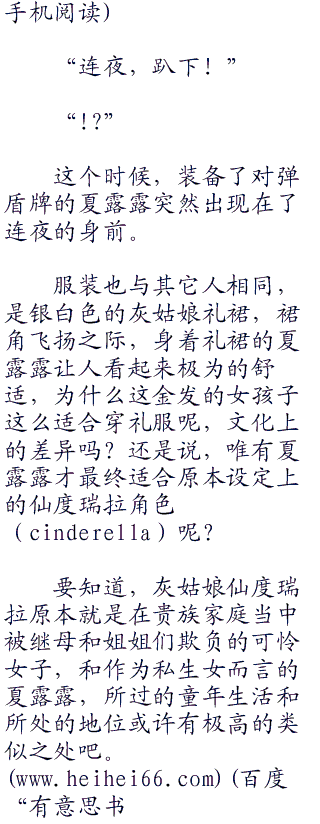 手机阅读)
“连夜，趴下！”
“!?”
这个时候，装备了对弹
盾牌的夏露露突然出现在了
连夜的身前。
服装也与其它人相同，
是银白色的灰姑娘礼裙，裙
角飞扬之际，身着礼裙的夏
露露让人看起来极为的舒
适，为什么这金发的女孩子
这么适合穿礼服呢，文化上
的差异吗？还是说，唯有夏
露露才最终适合原本设定上
的仙度瑞拉角色
（cinderella）呢？
要知道，灰姑娘仙度瑞
拉原本就是在贵族家庭当中
被继母和姐姐们欺负的可怜
女子，和作为私生女而言的
夏露露，所过的童年生活和
所处的地位或许有极高的类
似之处吧。
(www.heihei66.com)(百度
“有意思书